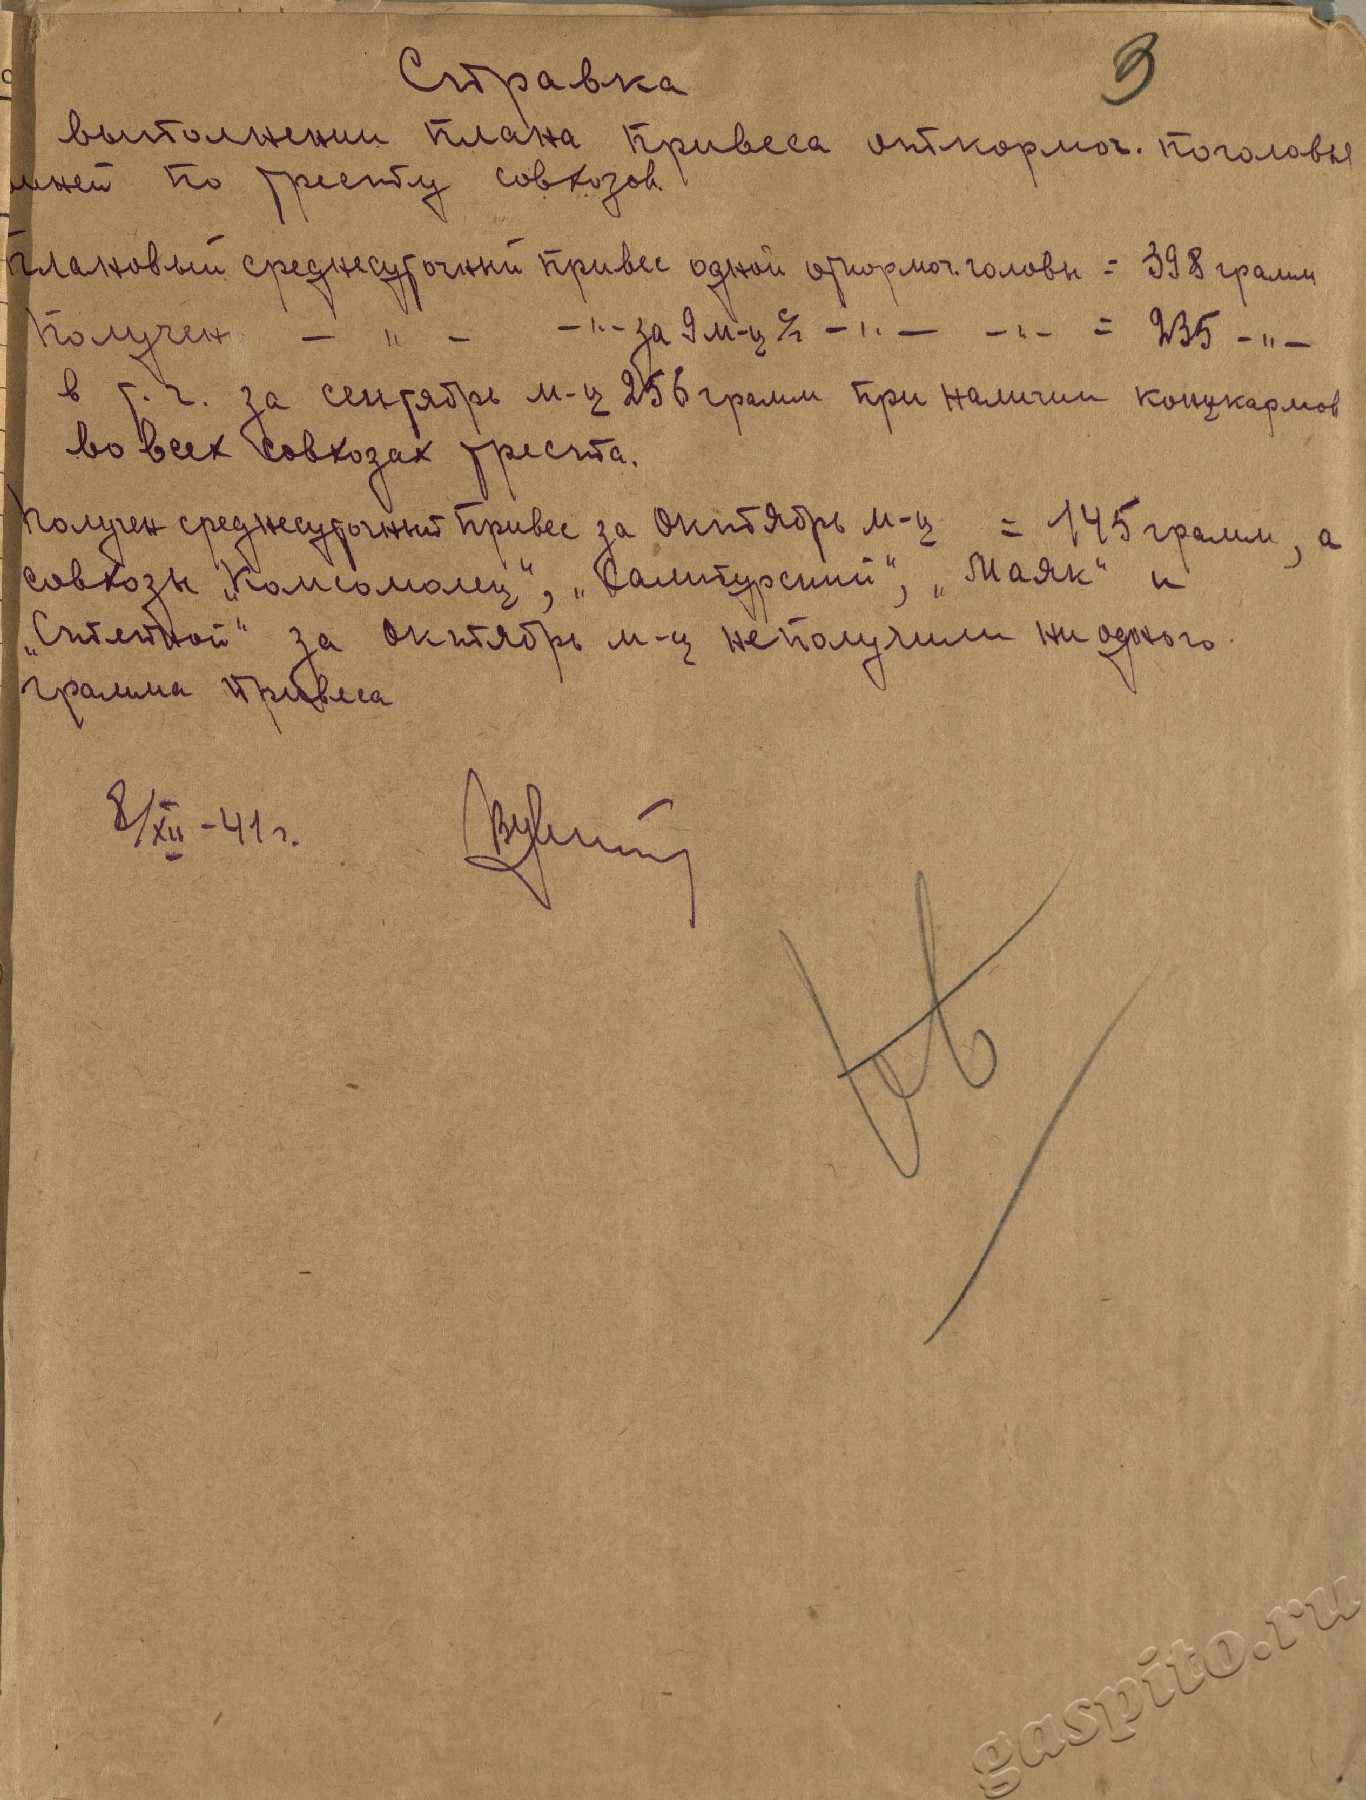 9
Справка
выполнении плана привеса откормоч. поголовья
по тресту совхозов.
Плановый среднесуточный привес одной откормоч. головы = 398 грамм
Получен — " — —"— за 9 м-ц —"— —"— = 235 —"—
в т. ч. за сентябрь м-ц 256 грамм при наличии концкармов
во всех совхозах треста.
Получен среднесуточний привес за Октябрь м-ц = 145 грамм, а
совхозы „Комсомолец", „Салтурский", „Маяк" и
„Степной" за Октябрь м-ц неполучили ниодного
грамма привеса
8/XII-41 г.
gaspito.ru